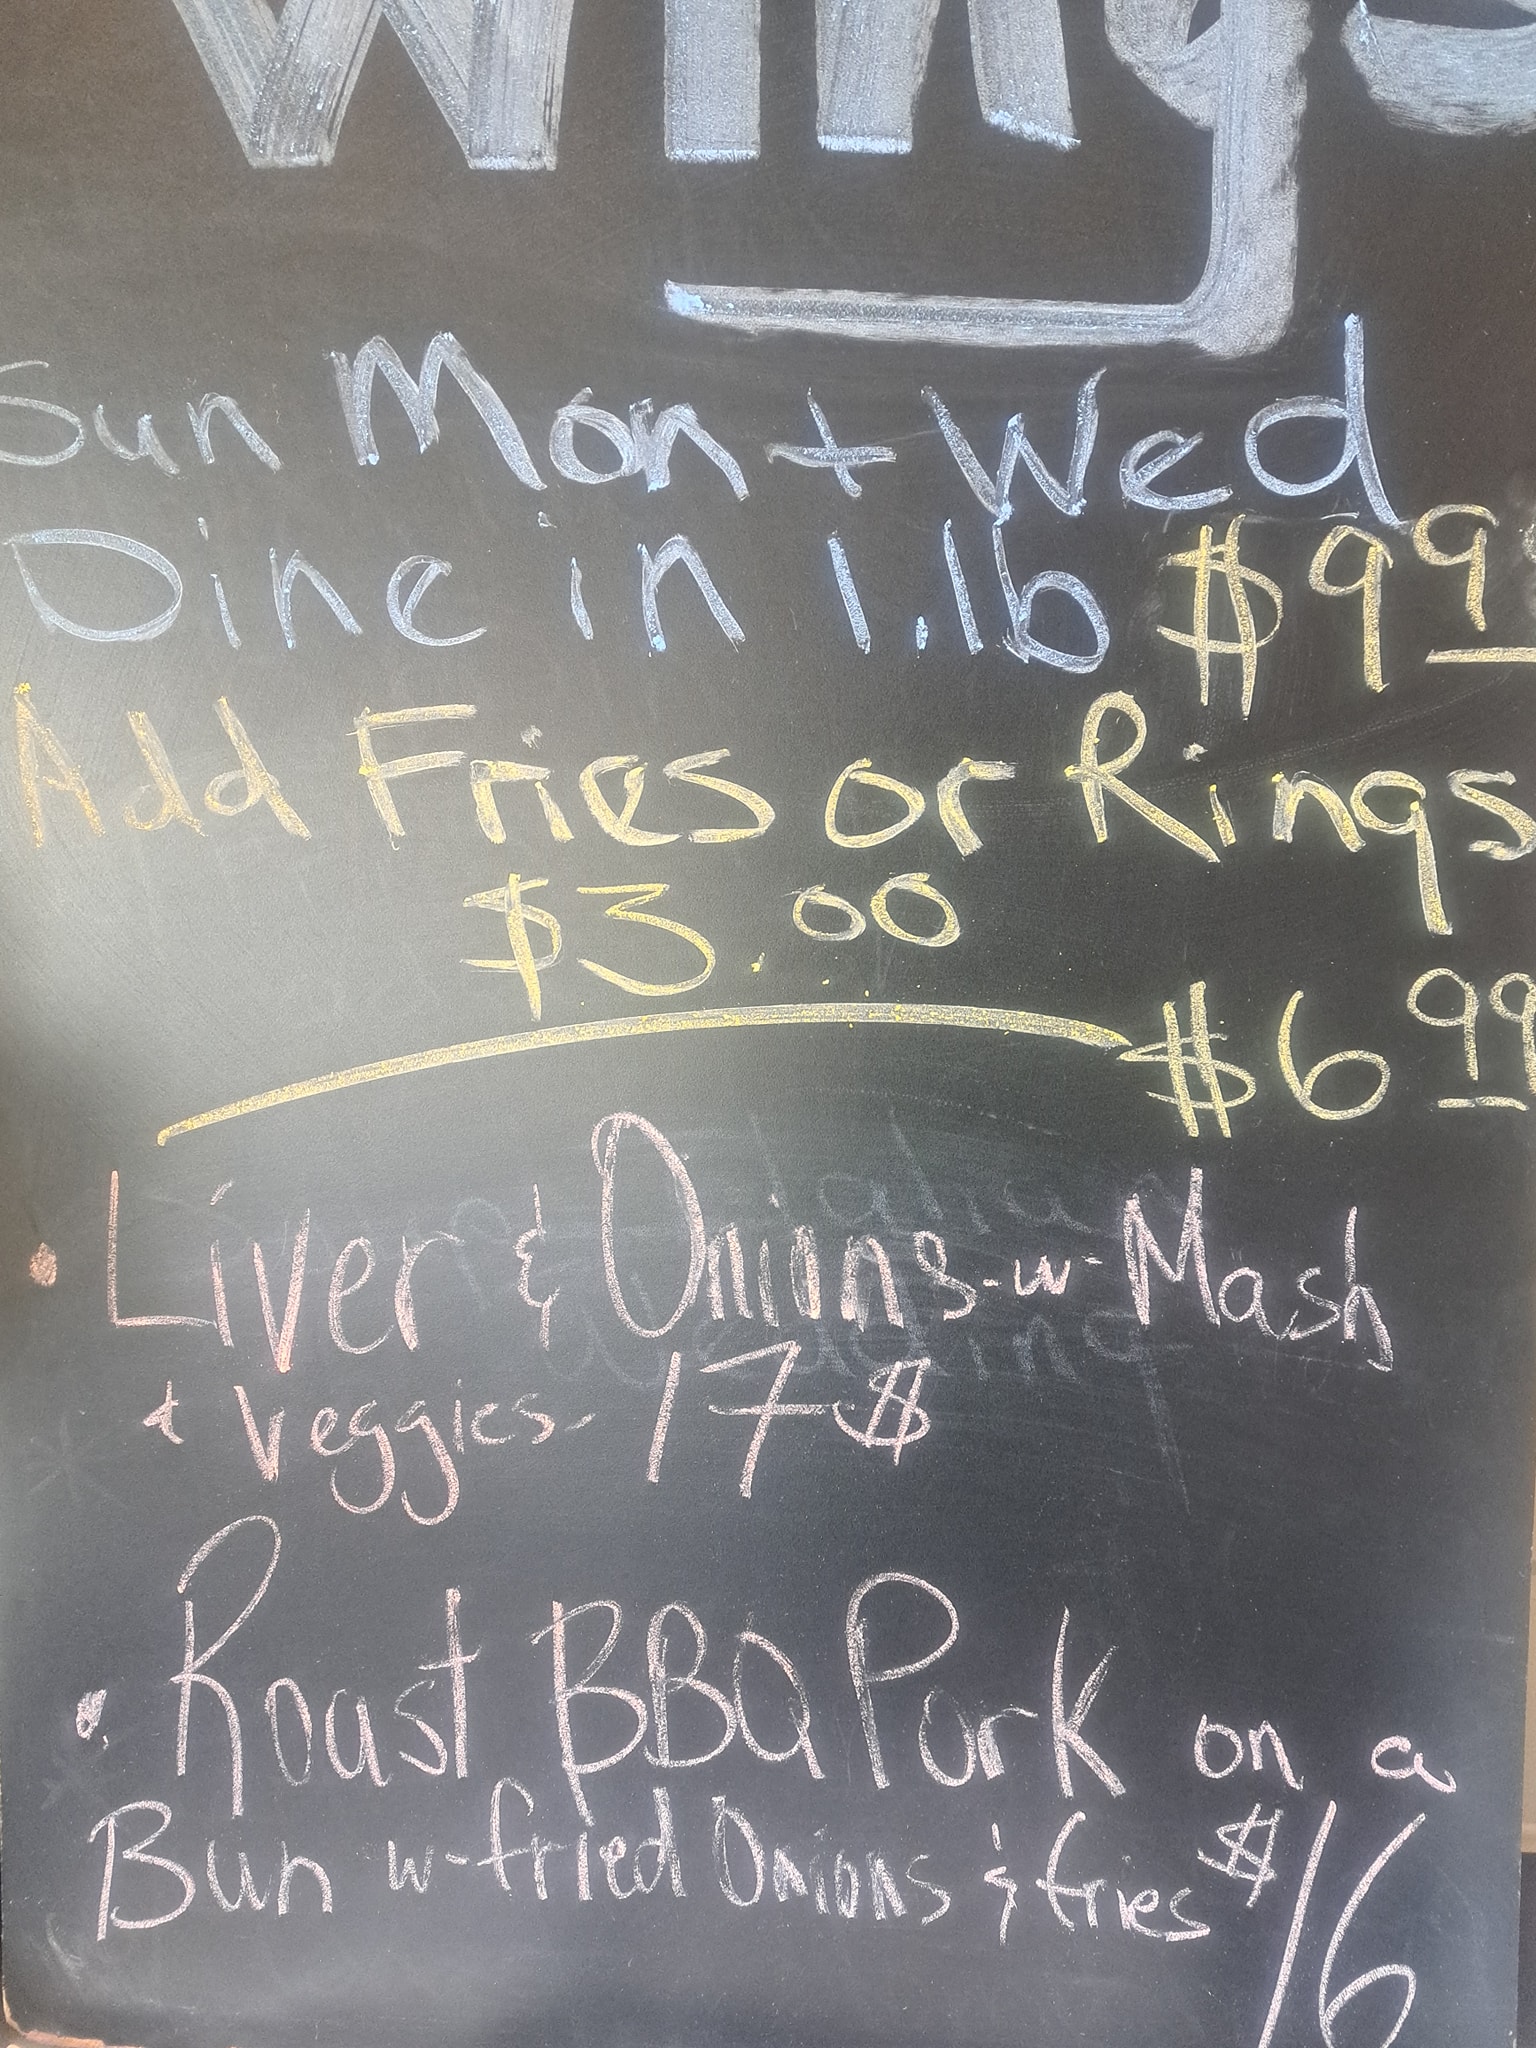 Wings
Sun Mon + Wed
Dine in 1.lb $9.99
Add Fries or Rings
$3.00
$6.99
• Liver & Onions -w- Mash
+ Veggies - 17$
• Roast BBQ Pork on a
Bun w- fried Onions & fries $16